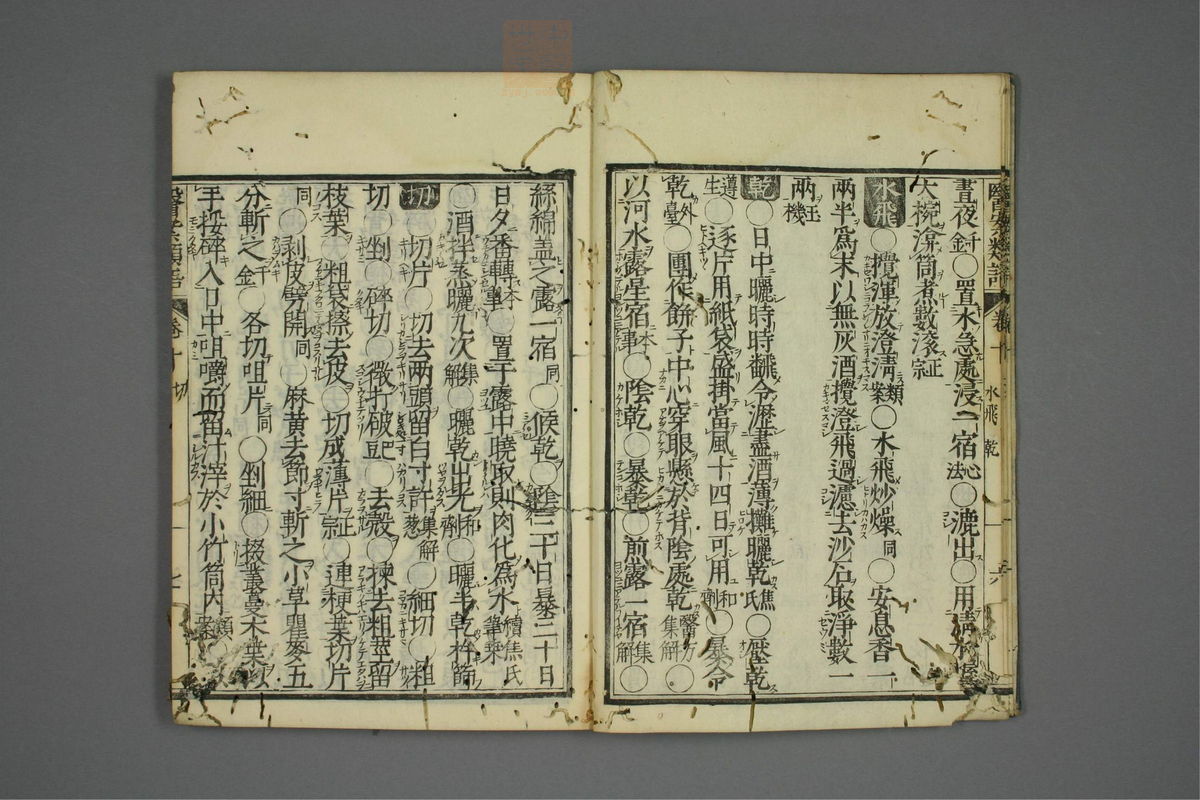 晝夜金○置水急處浸一宿心法○漉出○用
大椀滾筒煮數滾正宗
水飛○攪渾放澄淸類案○水飛炒燥同○安息香一
兩半爲末以無灰酒攪澄飛過濾去沙石取淨數一
兩玉機
乾○日中曬時時翻令瀝盡酒薄攤曬乾焦氏○壓乾
遵生○逐片用紙袋盛掛當風十四日可用和劑○暴令
乾外臺○團作餅子中心穿眼懸於背陰處乾醫方集解○
以河水露星宿本事○陰乾○暴乾○煎露一宿集解○
絲綿盖之露一宿同○候乾○陰三十日暴三十日
日夕番轉本事○置于露中曉取則肉化爲水續焦氏筆乘
○酒拌蒸曬九次集解○曬乾出光和劑○曬半乾杵篩
切○切片○切去兩頭留白寸許集解葱○細切○粗
切○剉○碎切○微打破豆巴○去殼○揀去粗莖留
枝葉○粗袋擦去皮○切成薄片正宗○連梗葉切片
同○剥皮劈開同○麻黄去節寸斬之小草瞿麥五
分斬之千金○各切咀片同○剉細○掇叢蔓木葉以
手挼碎入口中咀嚼而留汁滓於小竹筒内類案
水飛 乾
切